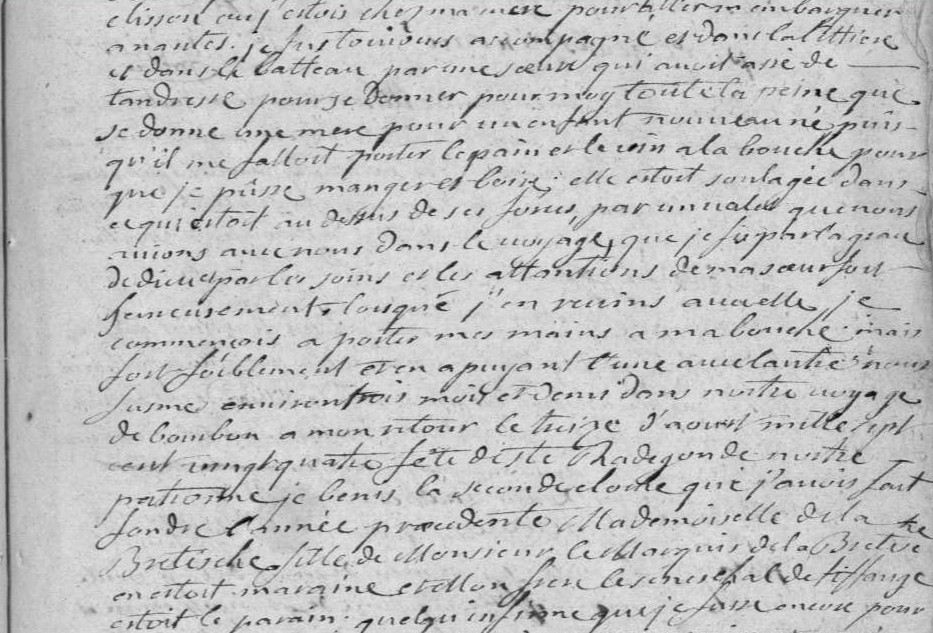 clisson ou j'estois chez ma mere pour aller m'embarquer
a nantes. je fus toujours accompagné et dans la littiere
et dans le batteau par une sœur qui avoit assé de
tandresse pour se donner pour moy toute la peine que
se donne une mere pour un enfant nouveau né puis-
qu'il me falloit porter le pain et le vin a la bouche pour
que je pusse manger et boire; elle estoit soulagée dans
ce qui estoit au dessus de ses forces par un valet que nous
avions avec nous dans le voyage, que je fis par la grace
de dieu et par les soins et les attantions de ma sœur fort
heureusement, lorsque j'en revins avec elle, je
commençois a porter mes mains a ma bouche mais
fort foiblement et en apuyant l'une avec l'autre nous
fusme environ trois mois et demi dans nostre voyage
de bourbon a mon retour le treize d'aoust mille sept
cent vingt quatre fête de ste Radegonde nostre
patronne je benis la seconde cloche que j'avois fait
fondre l'année precedente Mademoiselle de la
Bretesche fille de Monsieur le Marquis de la Bretesche
en estoit maraine et Mon frere le senechal de tiffauge
estoit le parain. quelqu'infirme que je fusse encore pour